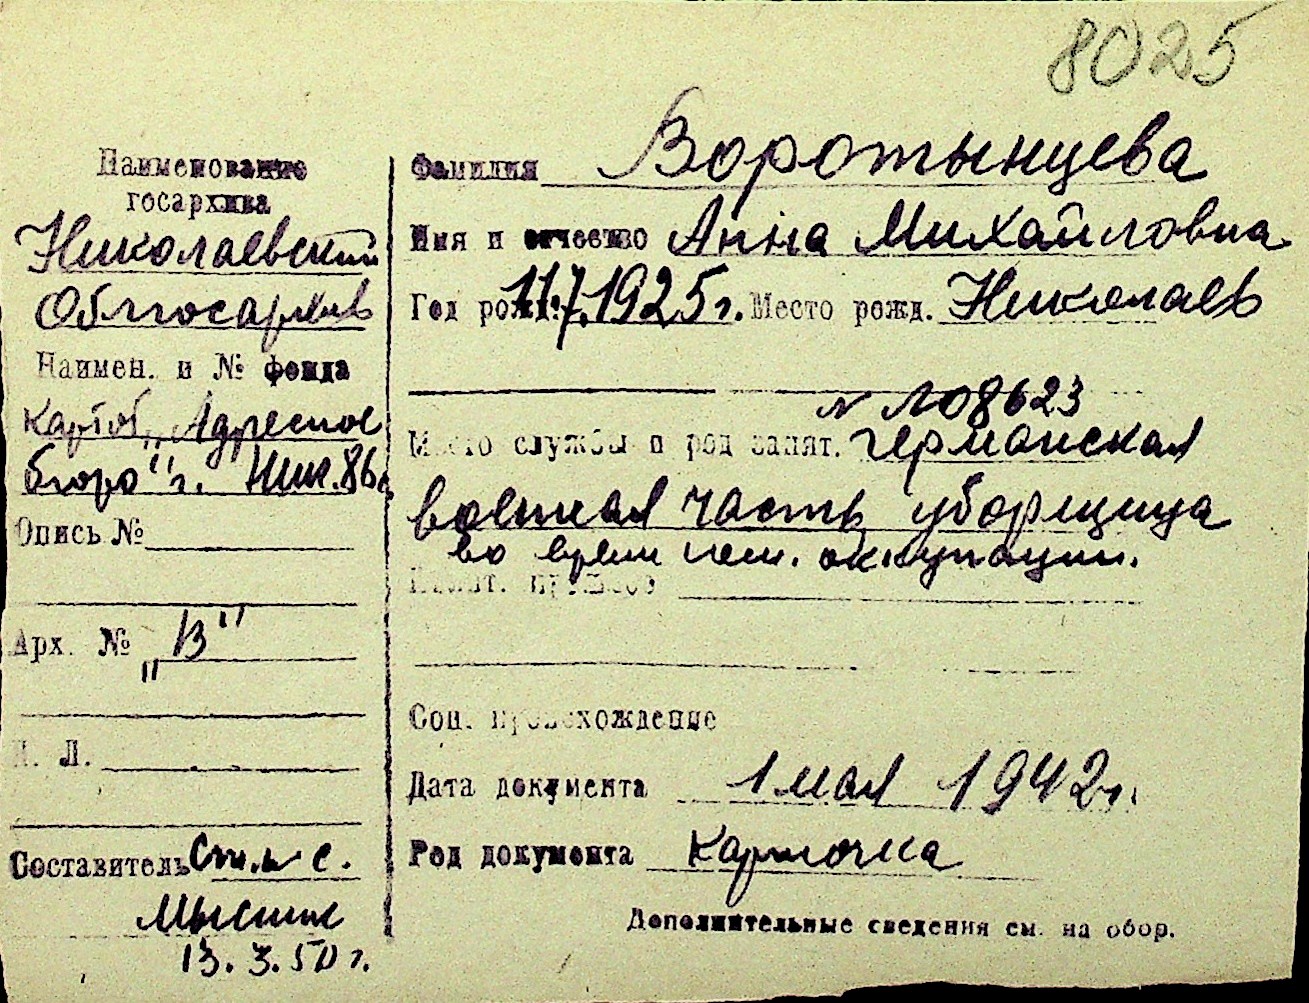 8025
Наименование
госархива
Николаевский
Облгосархив
Наимен. и № фонда
картот. „Адресное
бюро" г. Ник.
Опись №
Арх. № „В"
Л. Л.
Составитель
13.3.50 г.
Фамилия Воротынцева
Имя и отчество Анна Михайловна
Год рожд. 11.7.1925 г. Место рожд. Николаев
N Л08623
Место службы и род занят. германская
военная часть уборщица
во время нем. оккупации.
Соц. происхождение
Дата документа 1 мая 1942 г.
Род документа Карточка
Дополнительные сведения см. на обор.